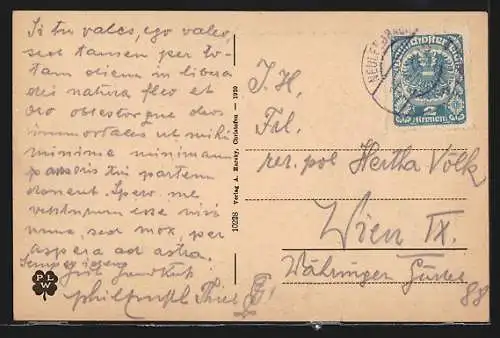 Si tu vales, ego valeo,
sed tamen per to-
tam diem in libera
dei natura fleo et
oro obtestorque deos
immortales ut mihi
minime minimam
partem
donent. Spero me
esse nisi
una, sed mox, per
aspera ad astra.
Semper idem
P L
W
10228 Verlag A. Marsky, Christofen — 1920
NEULENGBACH
Deutschösterreich
2
Kronen
I. H.
Frl.
rer. pol Hertha Völk
Wien IX.
Währinger Gürtel
88